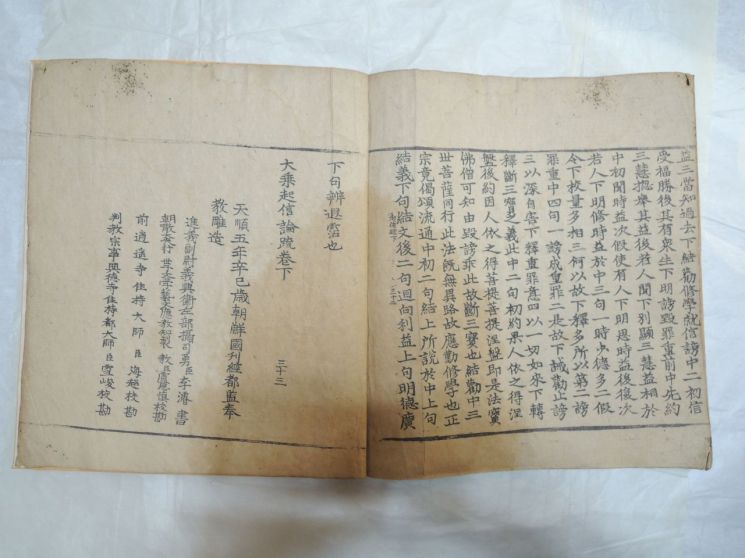 益三當知過去下結勸修學就信謗中二初信
受福勝後其有衆生下明謗毀罪重前中先約
三慧揔擧其益後若人聞下別顯三慧益相於
中初聞時益次假使有人下明思時益後復次
若人下明修時益於中三句一時少德多二假
令下校量多相三何以故下釋多所以第二謗
罪重中四句一謗成重罪二是故下誡勸止謗
三以深自害下釋重罪意四以一切如來下轉
釋斷三寶之義此中二句初約果人依之得涅
盤後約因人依之得菩提菩提涅盤即是法寶
佛僧可知由毀謗乖此故斷三寶也結勸中三
世菩薩同行此法旣無異路故應勸修學也正
宗竟偈頌流通中初二句結上所說於中上句
結義下句結文後二句迴向利益上句明德廣
下句辨退霑也
大乘起信論䟽卷下
三十三
天順五年辛巳歲朝鮮國刊經都監奉
教雕造
進義副尉義興衛 部 司勇臣李 書
前逍遙寺住持大師臣海超校勘
判教宗事興德寺住持都大師臣雪峻校勘